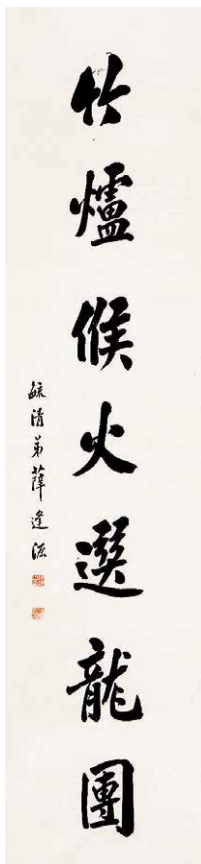 竹爐候火選龍團
毓清弟薛逢源